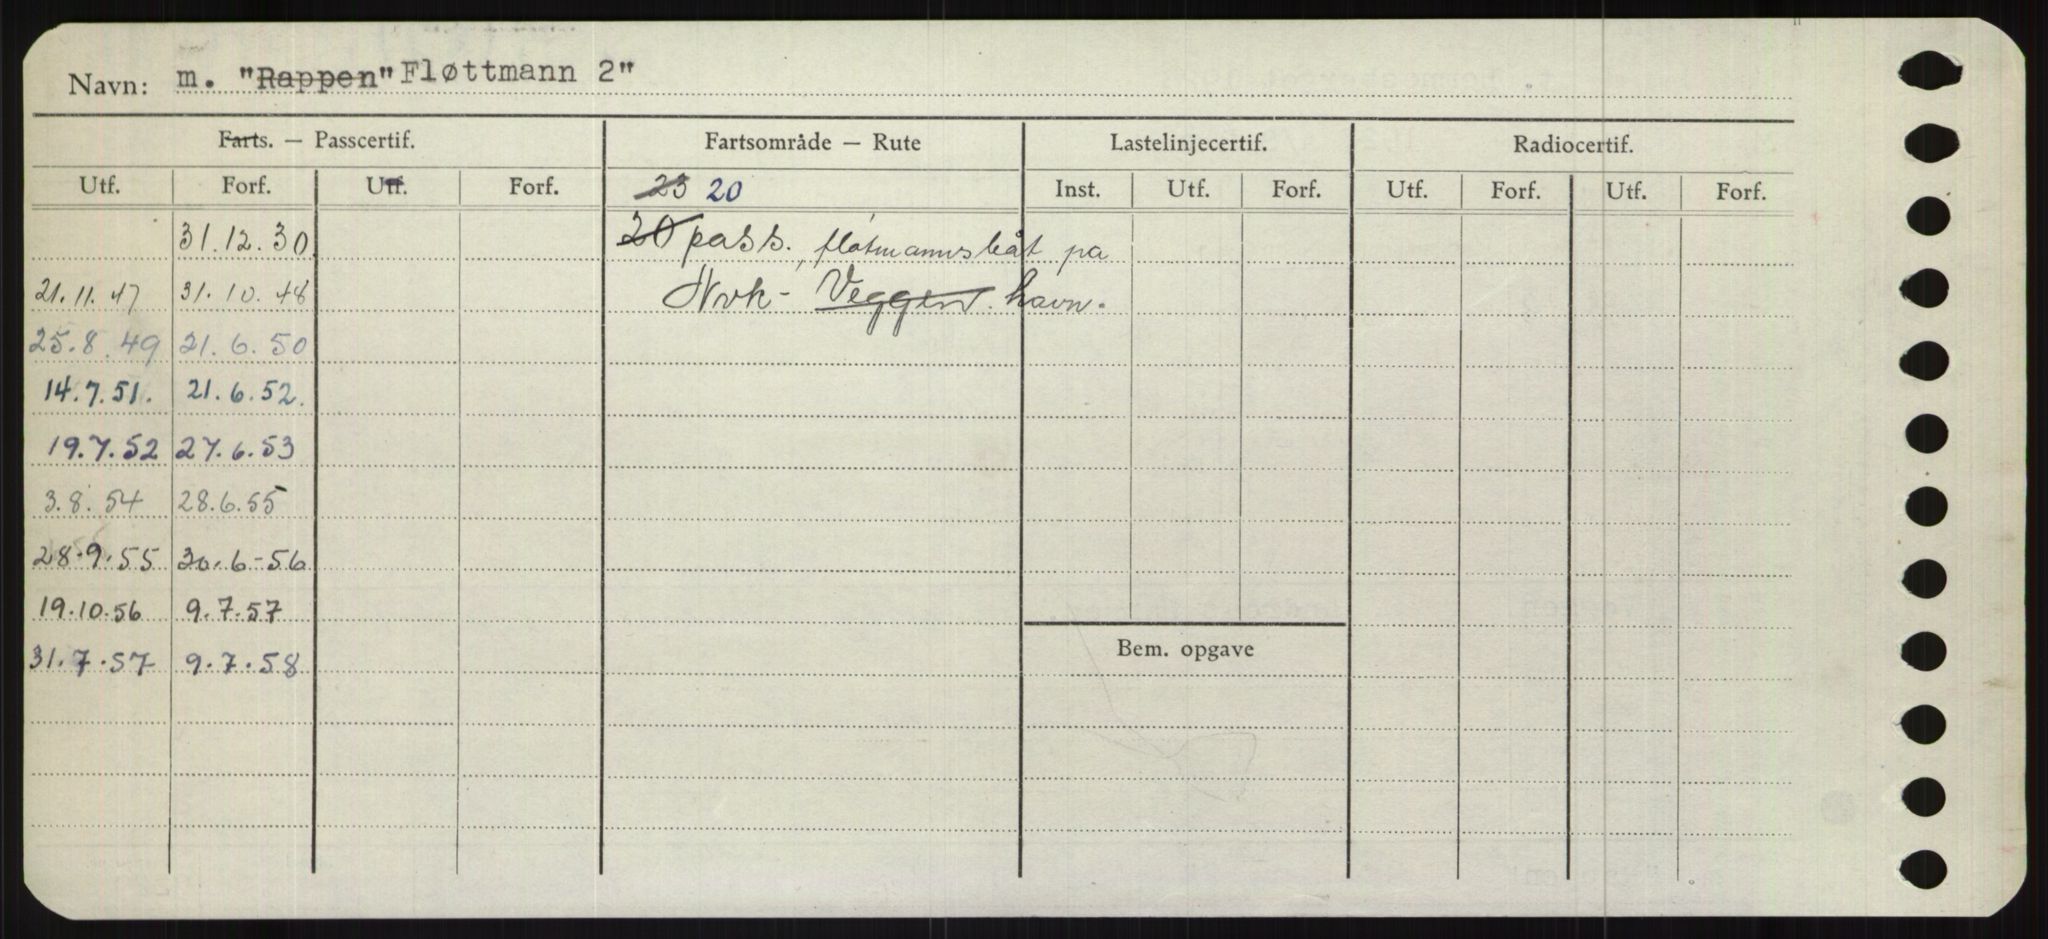 Navn: m. "Rappen" Fløttmann 2"
Farts. — Passcertif. Fartsområde — Rute Lastelinjecertif. Radiocertif.
Utf. Forf. Utf. Forf. 23 20 Inst. Utf. Forf. Utf. Forf. Utf. Forf.
31.12.30 20 pass., fløtmannsbåt på
21.11.47 31.10.48 Nvk - Veggen. havn.
25.8.49 21.6.50
14.7.51. 21.6.52.
19.7.52 27.6.53
3.8.54 28.6.55
28.9.55 30.6-56
19.10.56 9.7.57
Bem. opgave
31.7.57 9.7.58